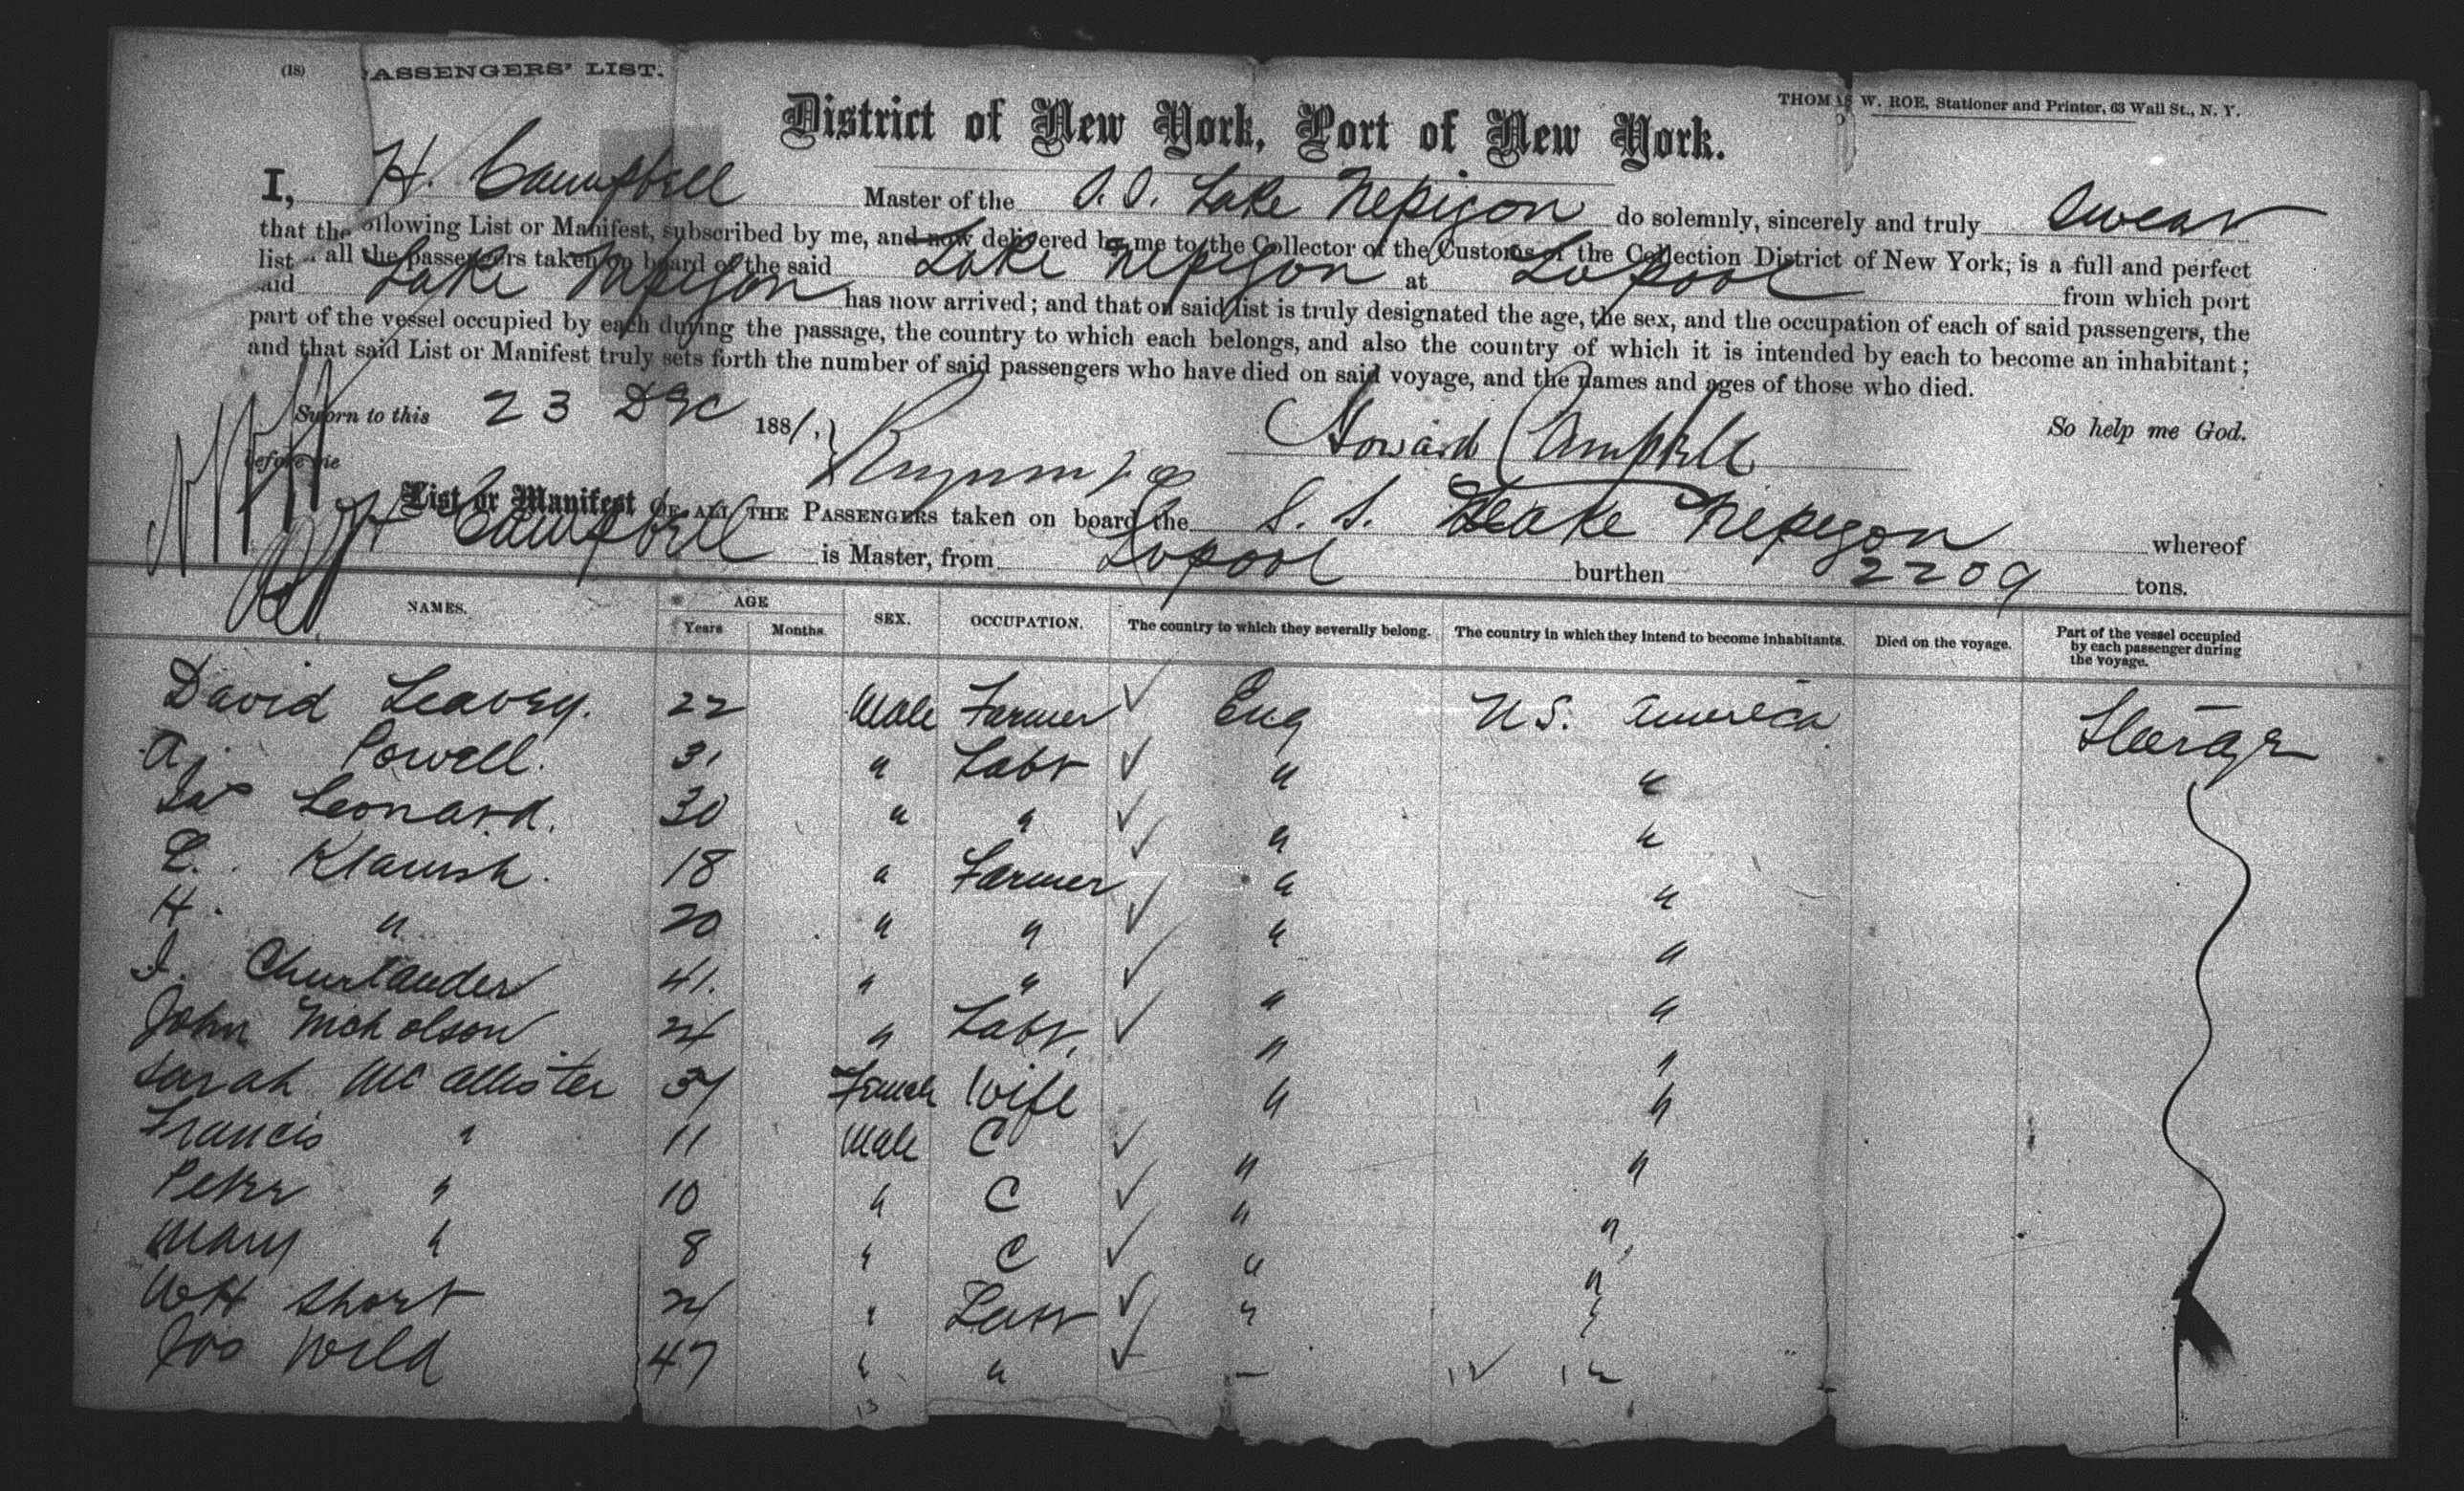 (18) PASSENGERS' LIST.
THOMAS W. ROE, Stationer and Printer, 63 Wall St., N. Y.
District of New York, Port of New York.
I, H. Campbell Master of the S.S. Lake Nepigon do solemnly, sincerely and truly swear
that the following List or Manifest, subscribed by me, and now delivered by me to the Collector of the Customs of the Collection District of New York, is a full and perfect
list of all the passengers taken on board of the said Lake Nepigon at Lvpool from which port
said Lake Nepigon has now arrived; and that on said list is truly designated the age, the sex, and the occupation of each of said passengers, the
part of the vessel occupied by each during the passage, the country to which each belongs, and also the country of which it is intended by each to become an inhabitant;
and that said List or Manifest truly sets forth the number of said passengers who have died on said voyage, and the names and ages of those who died.
Sworn to this 23 Dec 1881, So help me God.
before me Howard Campbell
List or Manifest OF ALL THE PASSENGERS taken on board the S. S. Lake Nepigon whereof
H Campbell is Master, from Lvpool burthen 2209 tons.
NAMES. AGE Years Months. SEX. OCCUPATION. The country to which they severally belong. The country in which they intend to become inhabitants. Died on the voyage. Part of the vessel occupied by each passenger during the voyage.
David Leavey. 22 Male Farmer ✓ Eng U.S. America Steerage
A. Powell. 31 " Labr ✓ " "
Jas Leonard. 30 " " ✓ " "
18 " Farmer ✓ " "
H. " 20 " " ✓ " "
41. " " ✓ " "
John Nicholson 24 " Labr. ✓ " "
Sarah McAllister 37 Female Wife " "
Francis " 11 Male C ✓ " "
Peter " 10 " C ✓ " "
Mary " 8 " C ✓ " "
WH Short " Labr ✓ " "
Jos Wild 47 " " ✓
13